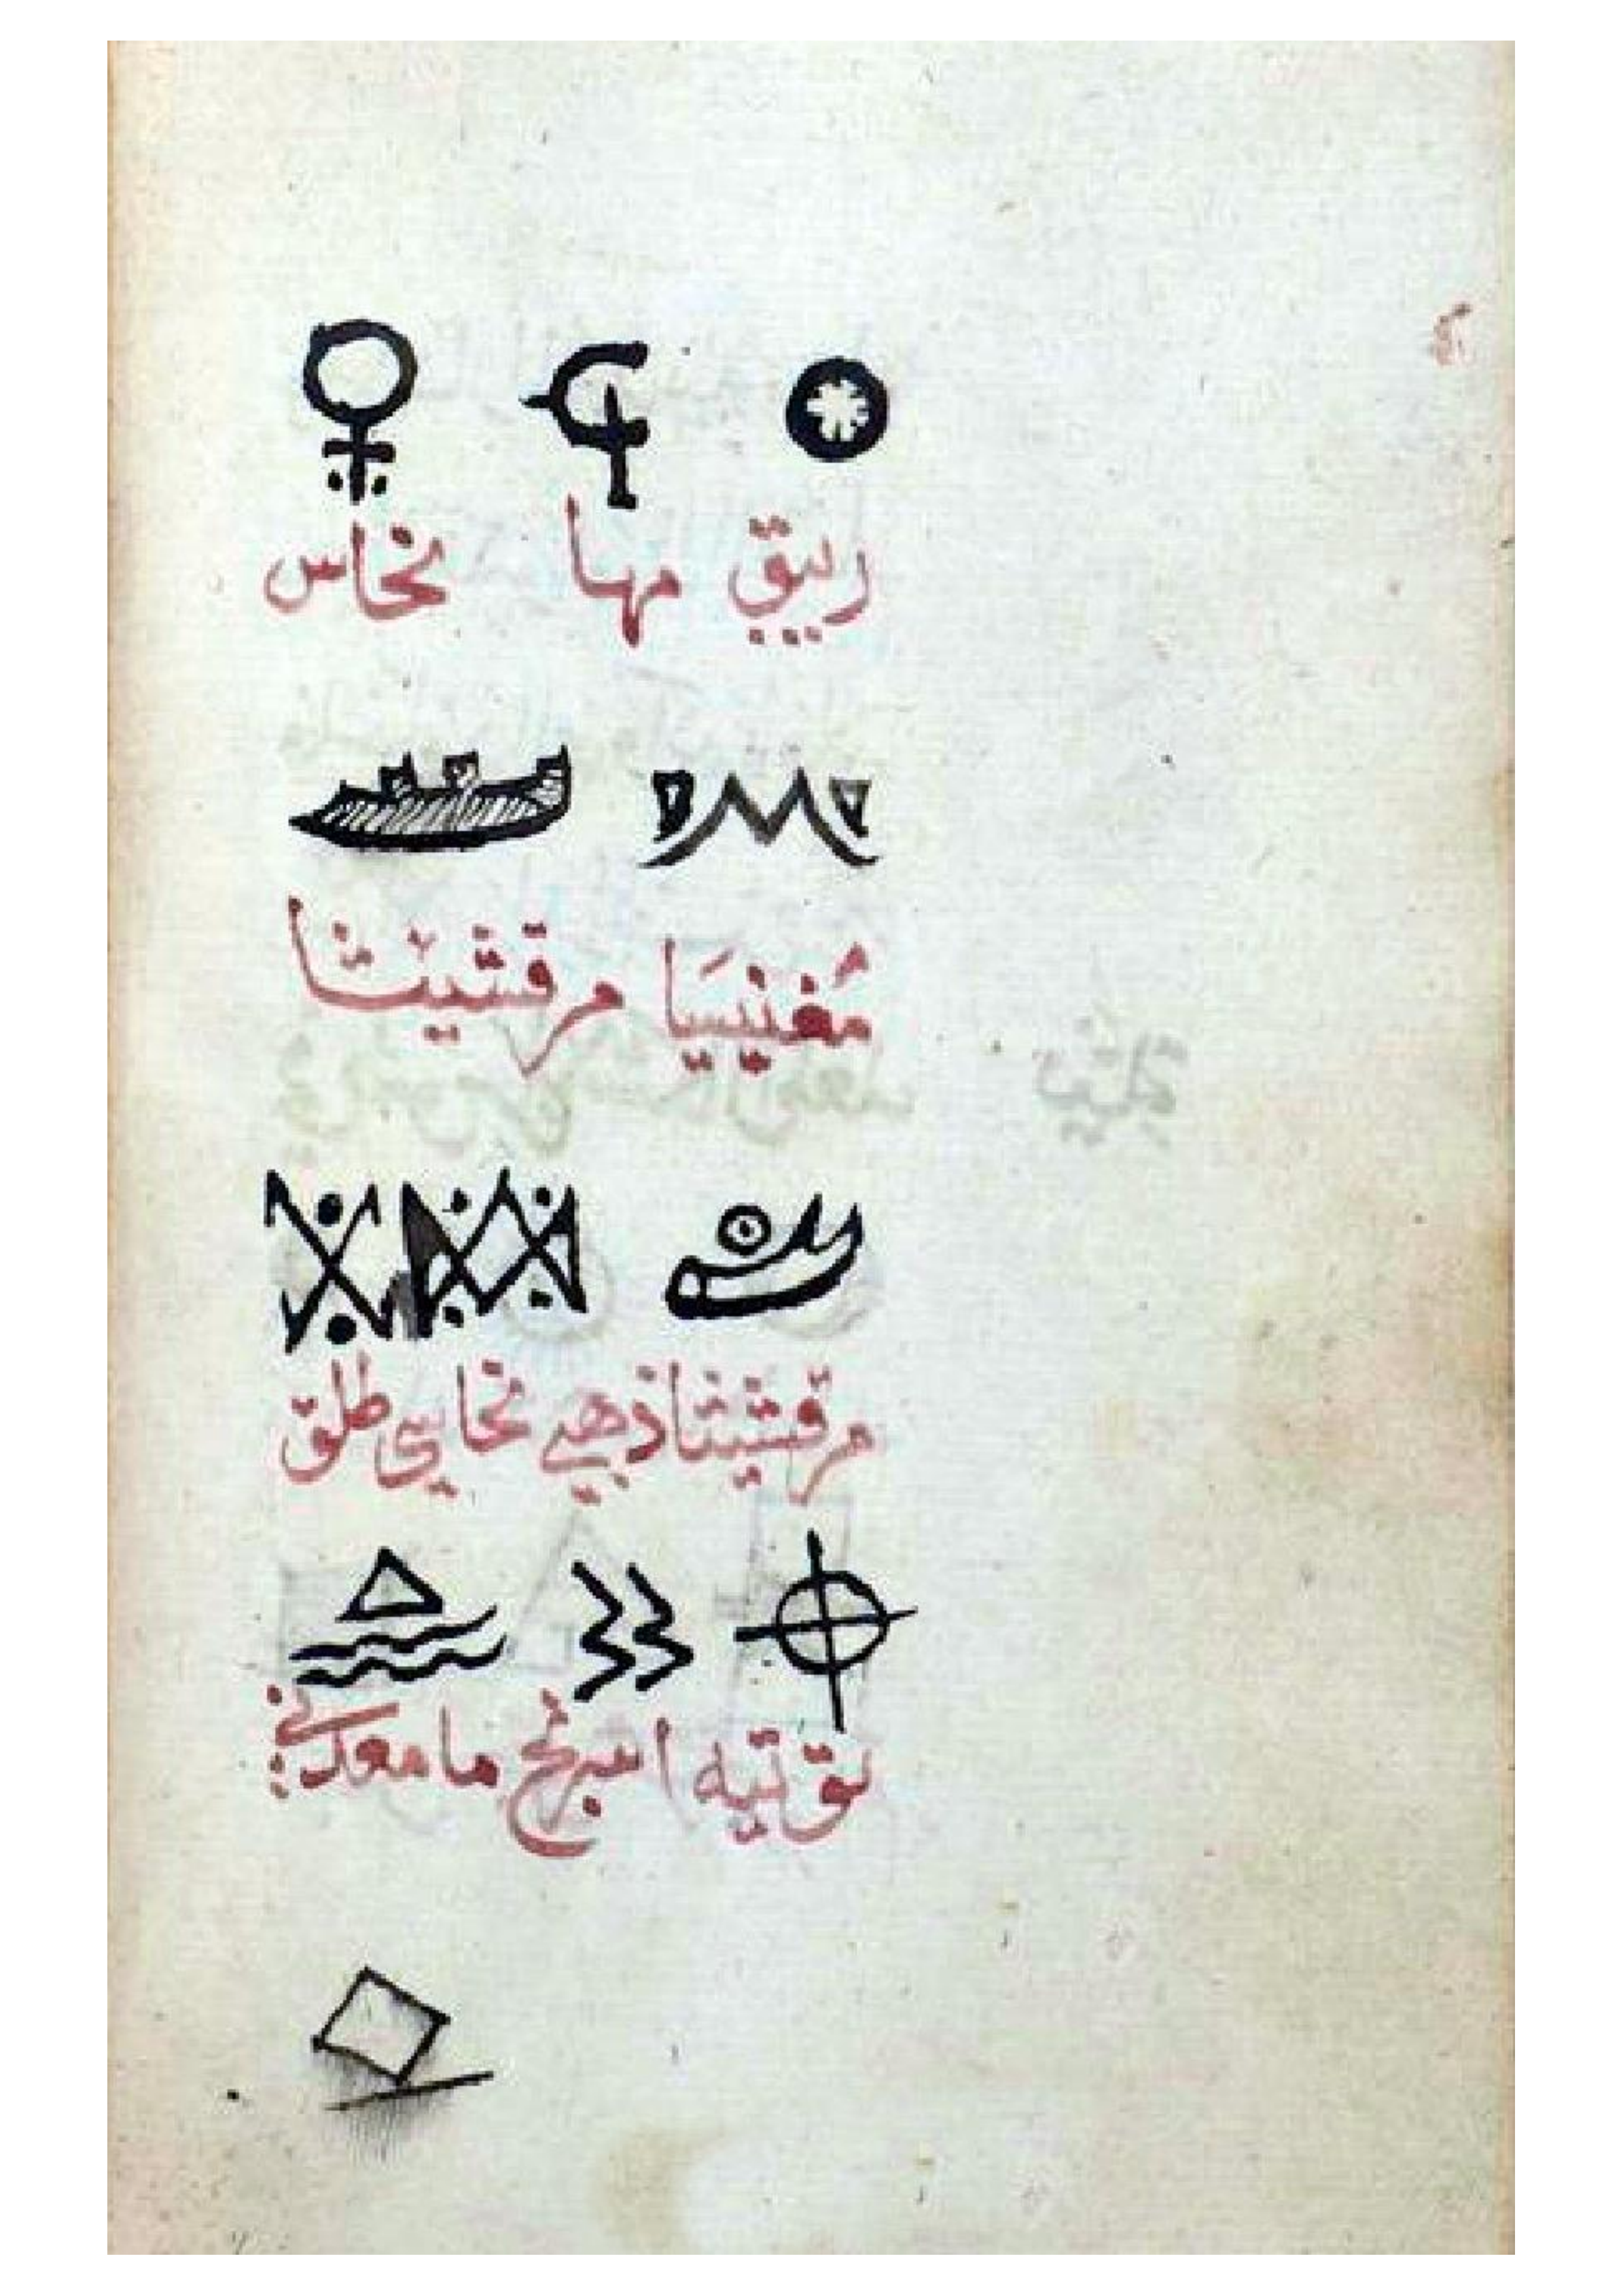 زيبق مها نحاس
مُغنيسَيا مرقشيثا
مرقشيثا ذهبي نحاسي طلق
توتيه اسرنج ما معدني